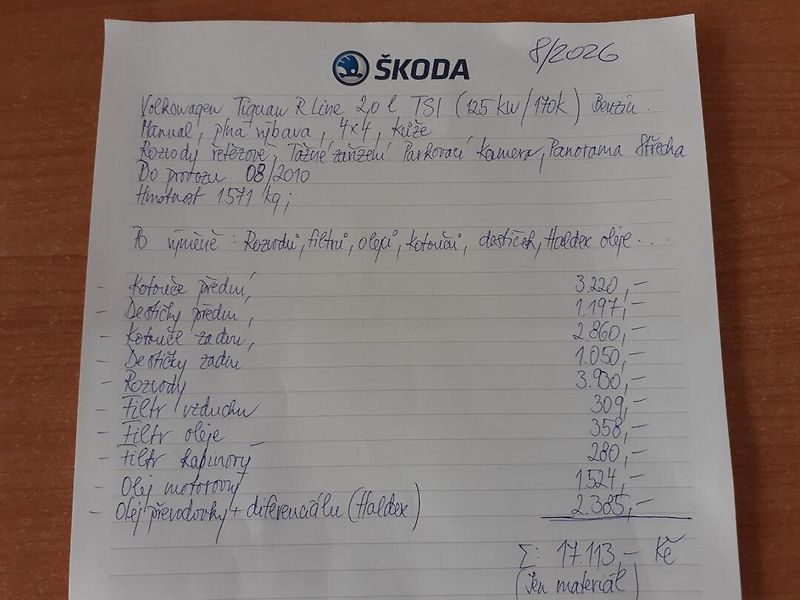 ŠKODA
8/2026
Volkswagen Tiguan R Line 2,0 l TSI (125 kw/170k) Benzín.
Manual, plná výbava, 4x4, kůže
Rozvody řetězové, Tažné zařízení Parkovací kamera, Panorama Střecha
Do provozu 08/2010
Hmotnost 1571 kg;
Po výměně: Rozvodů, filtrů, olejů, kotoučů, destiček, Haldex oleje...
- Kotouče přední, 3.220,-
- Destičky přední, 1.197,-
- Kotouče zadní, 2.860,-
- Destičky zadní 1.050,-
- Rozvody 3.930,-
- Filtr vzduchu 309,-
- Filtr oleje 358,-
- Filtr kabinový 280,-
- Olej motorový 1.524,-
- Olej převodovky + diferenciálu (Haldex) 2.385,-
Σ: 17.113,- Kč
(Jen materiál)